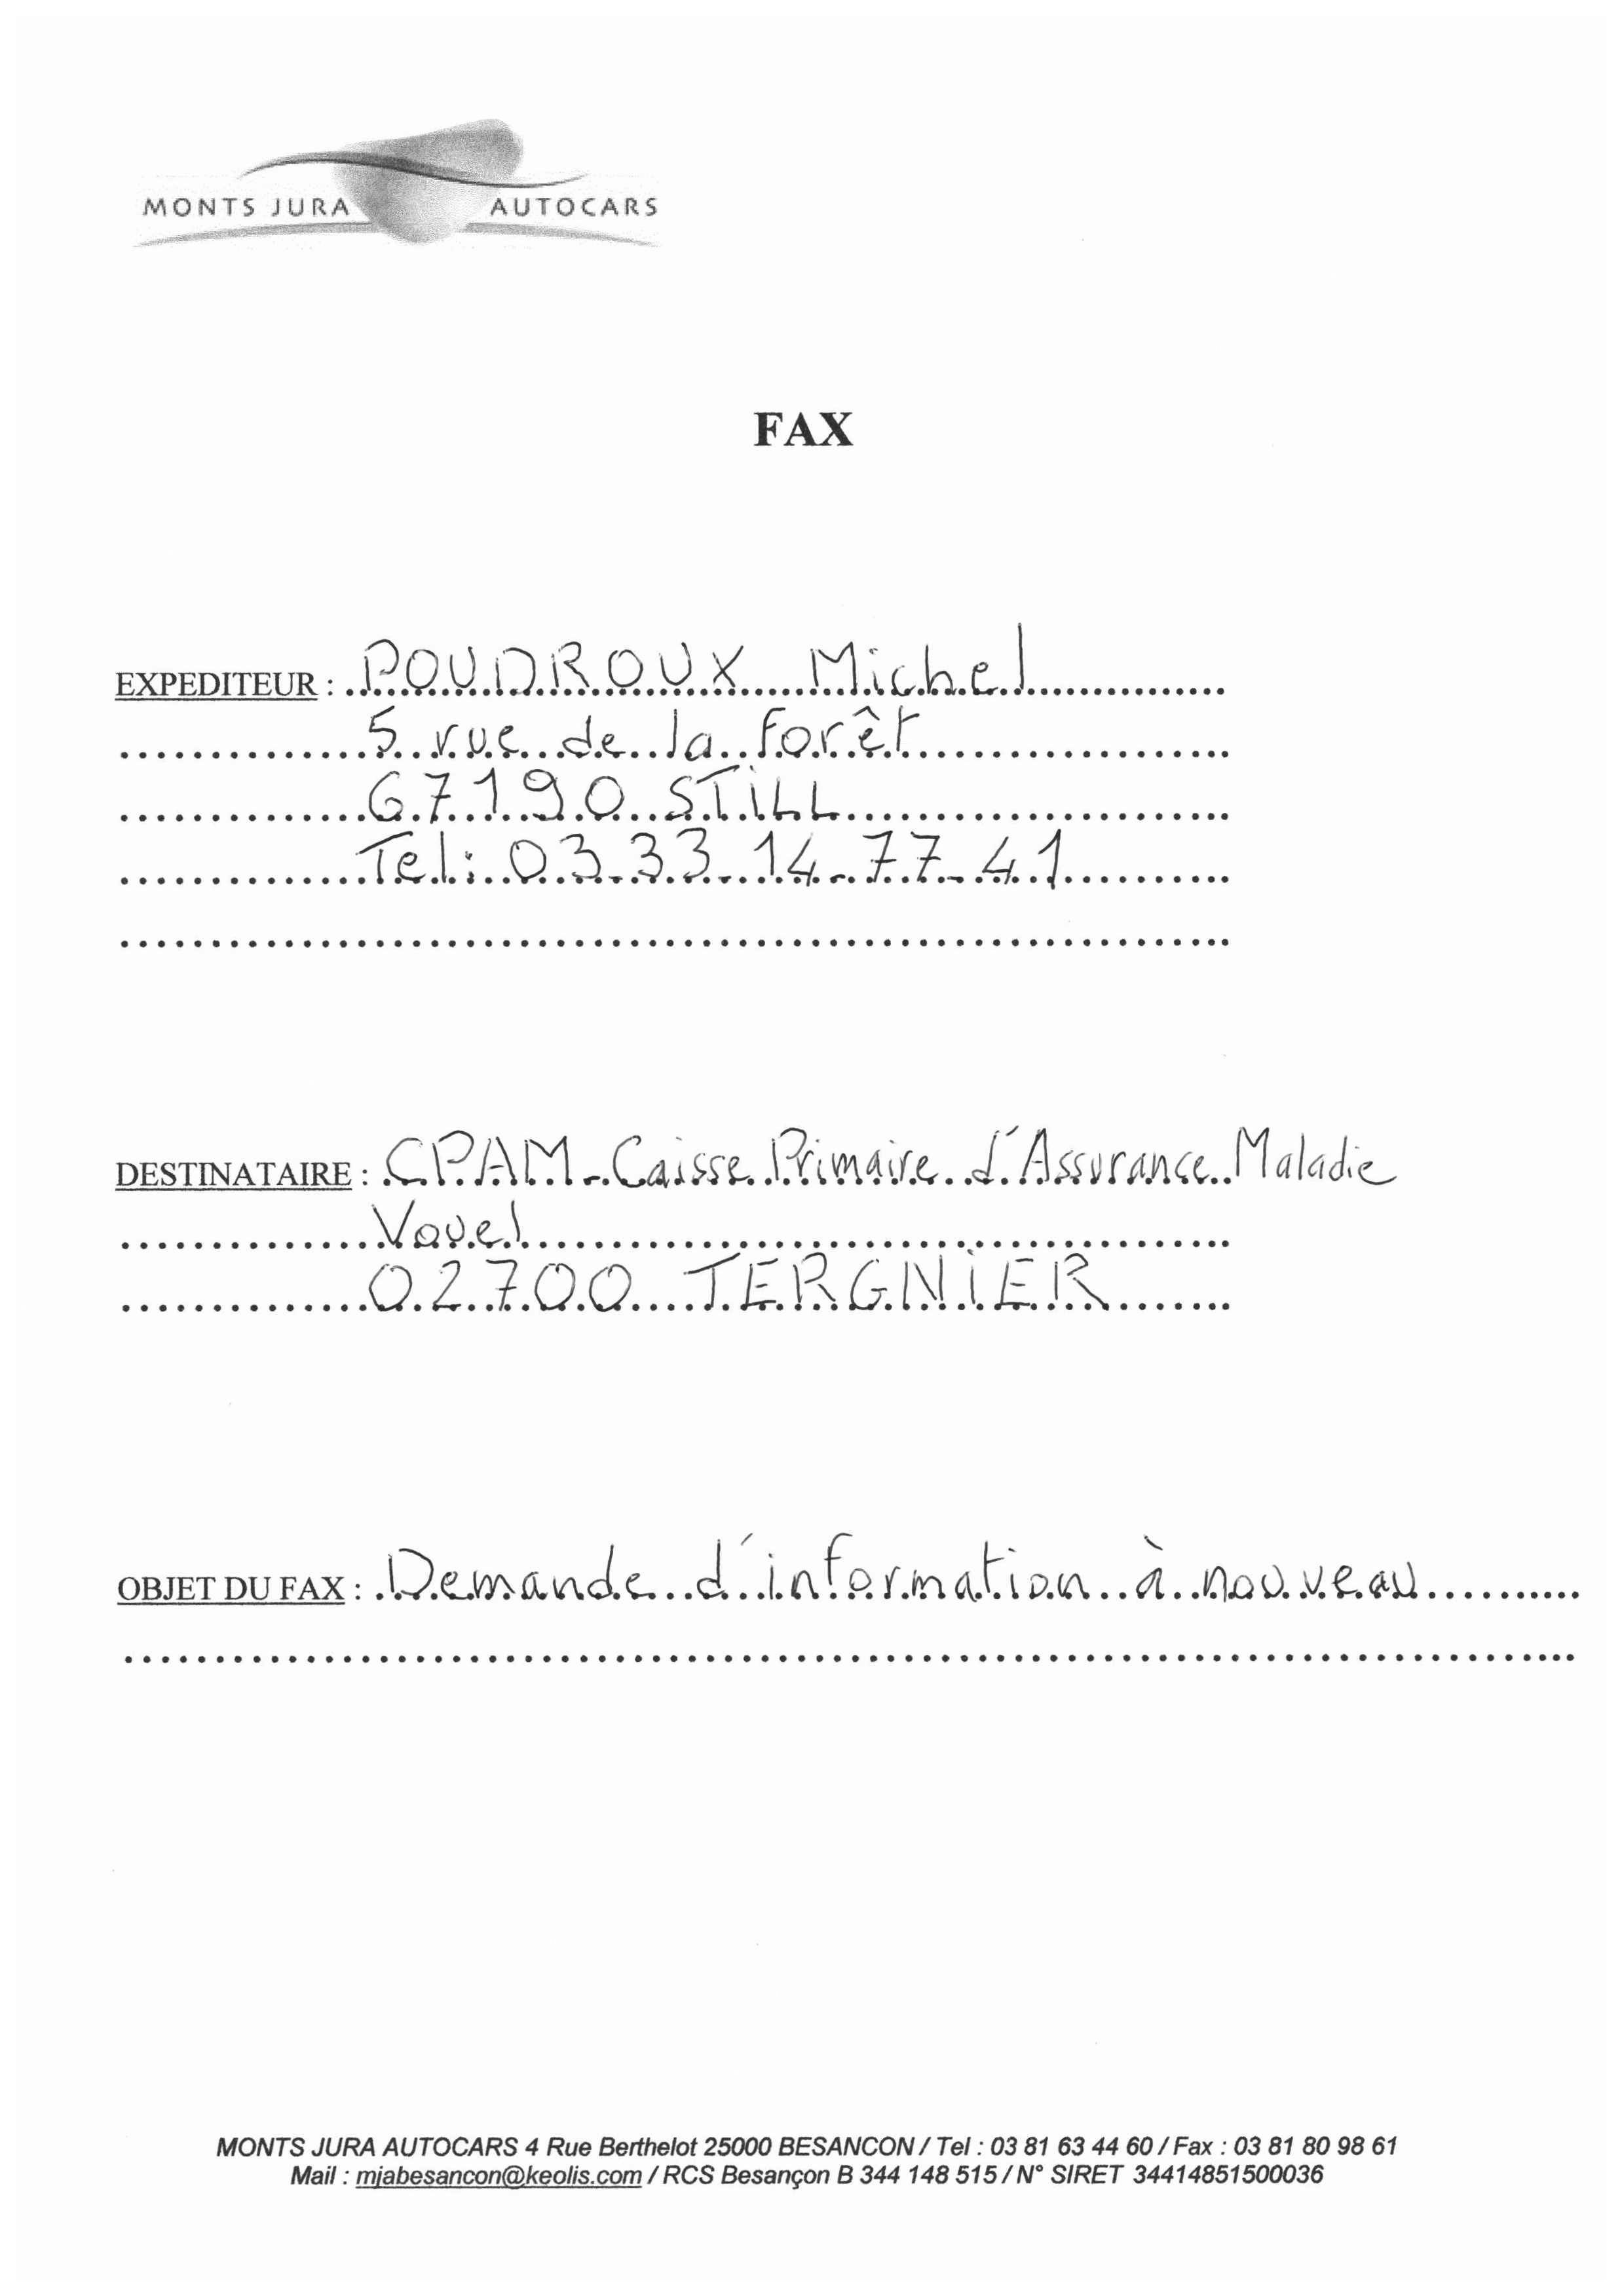 MONTS JURA AUTOCARS
FAX
EXPEDITEUR : POUDROUX Michel
5 rue de la forêt
67190 STILL
Tel: 03-33-14-77-41
DESTINATAIRE : CPAM - Caisse Primaire d'Assurance Maladie
Vouel
02700 TERGNIER
OBJET DU FAX : Demande d'information à nouveau
MONTS JURA AUTOCARS 4 Rue Berthelot 25000 BESANCON / Tel : 03 81 63 44 60 / Fax : 03 81 80 98 61
Mail : mjabesancon@keolis.com / RCS Besançon B 344 148 515 / N° SIRET 34414851500036